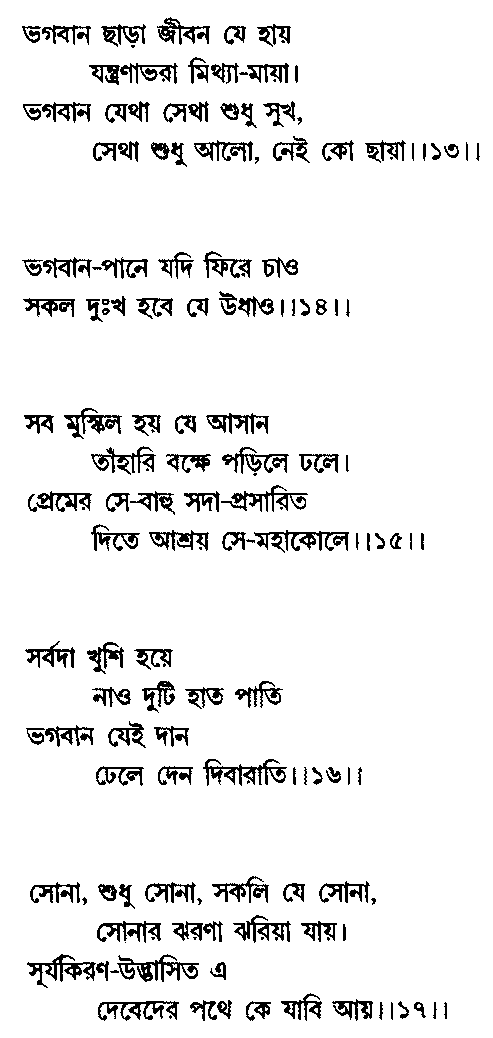 ভগবান ছাড়া জীবন যে হায়
যন্ত্রণাভরা মিথ্যা-মায়া।
ভগবান যেথা সেথা শুধু সুখ,
সেথা শুধু আলো, নেই কো ছায়া।।১৩।।
ভগবান-পানে যদি ফিরে চাও
সকল দুঃখ হবে যে উধাও।।১৪।।
সব মুস্কিল হয় যে আসান
তাঁহারি বক্ষে পড়িলে ঢলে।
প্রেমের সে-বাহু সদা-প্রসারিত
দিতে আশ্রয় সে-মহাকোলে।।১৫।।
সর্বদা খুশি হয়ে
নাও দুটি হাত পাতি
ভগবান যেই দান
ঢেলে দেন দিবারাতি।।১৬।।
সোনা, শুধু সোনা, সকলি যে সোনা,
সোনার ঝরণা ঝরিয়া যায়।
সূর্যকিরণ-উদ্ভাসিত এ
দেবেদের পথে কে যাবি আয়।।১৭।।